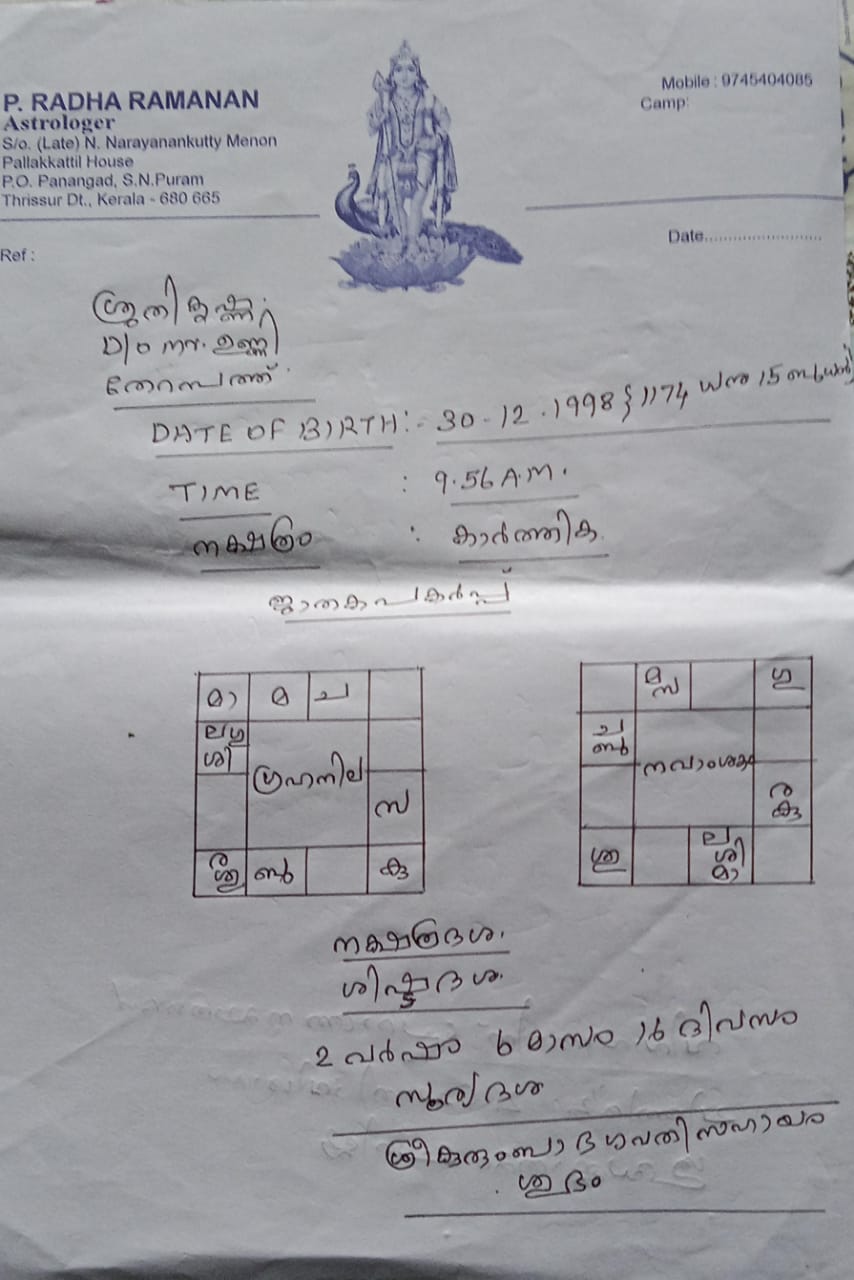 P. RADHA RAMANAN
Astrologer
S/o. (Late) N. Narayanankutty Menon
Pallakkattil House
P.O. Panangad, S.N.Puram
Thrissur Dt., Kerala - 680 665
Mobile : 9745404085
Camp:
Date........................
Ref :
ശ്രുതി കൃഷ്ണ.
D/o Mr. ഉണ്ണി
തേറമ്പത്ത്
DATE OF BIRTH :- 30-12.1998 } 1174 ധനു 15 ബുധൻ
TIME : 9.56 A.M.
നക്ഷത്രം : കാർത്തിക
ജാതകപകർപ്പ്
മാ മ ച
ലഗ്ന
ശി
ഗ്രഹനില
സ
ര
ശു ബു കു
മ
സ
ഗു
ച
ബു
നവാംശകം
ര
കു
ശു
ല
ശി
മാ
നക്ഷത്രദശ.
ശിഷ്ടദശ.
2 വർഷം 6 മാസം 16 ദിവസം
സൂര്യദശ
ശ്രീകുരുംബാഭഗവതി സഹായം
ശുഭം